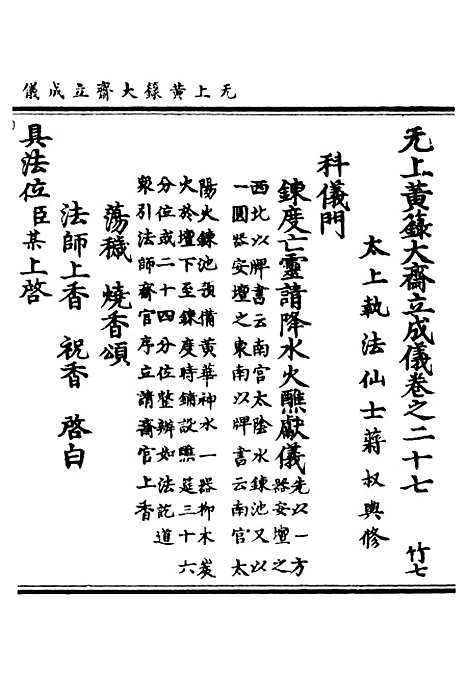 无上黃籙大齋立成儀
无上黃籙大齋立成儀卷之二十七 竹七
太上執法仙士蔣叔輿修
科儀門
鍊度亡靈請降水火醮獻儀先以一方器安壇之
西北以牌書云南宮太陰水鍊池又以
一圓器安壇之東南以牌書云南宮太
陽火鍊池預備黃華神水一器柳木炭
火於壇下至鍊度時鋪設醮筵三十六
分位或二十四分位整辦如法訖道
衆引法師齋官序立請齋官上香
蕩穢 燒香頌
法師上香 祝香 啓白
具法位臣某上啓